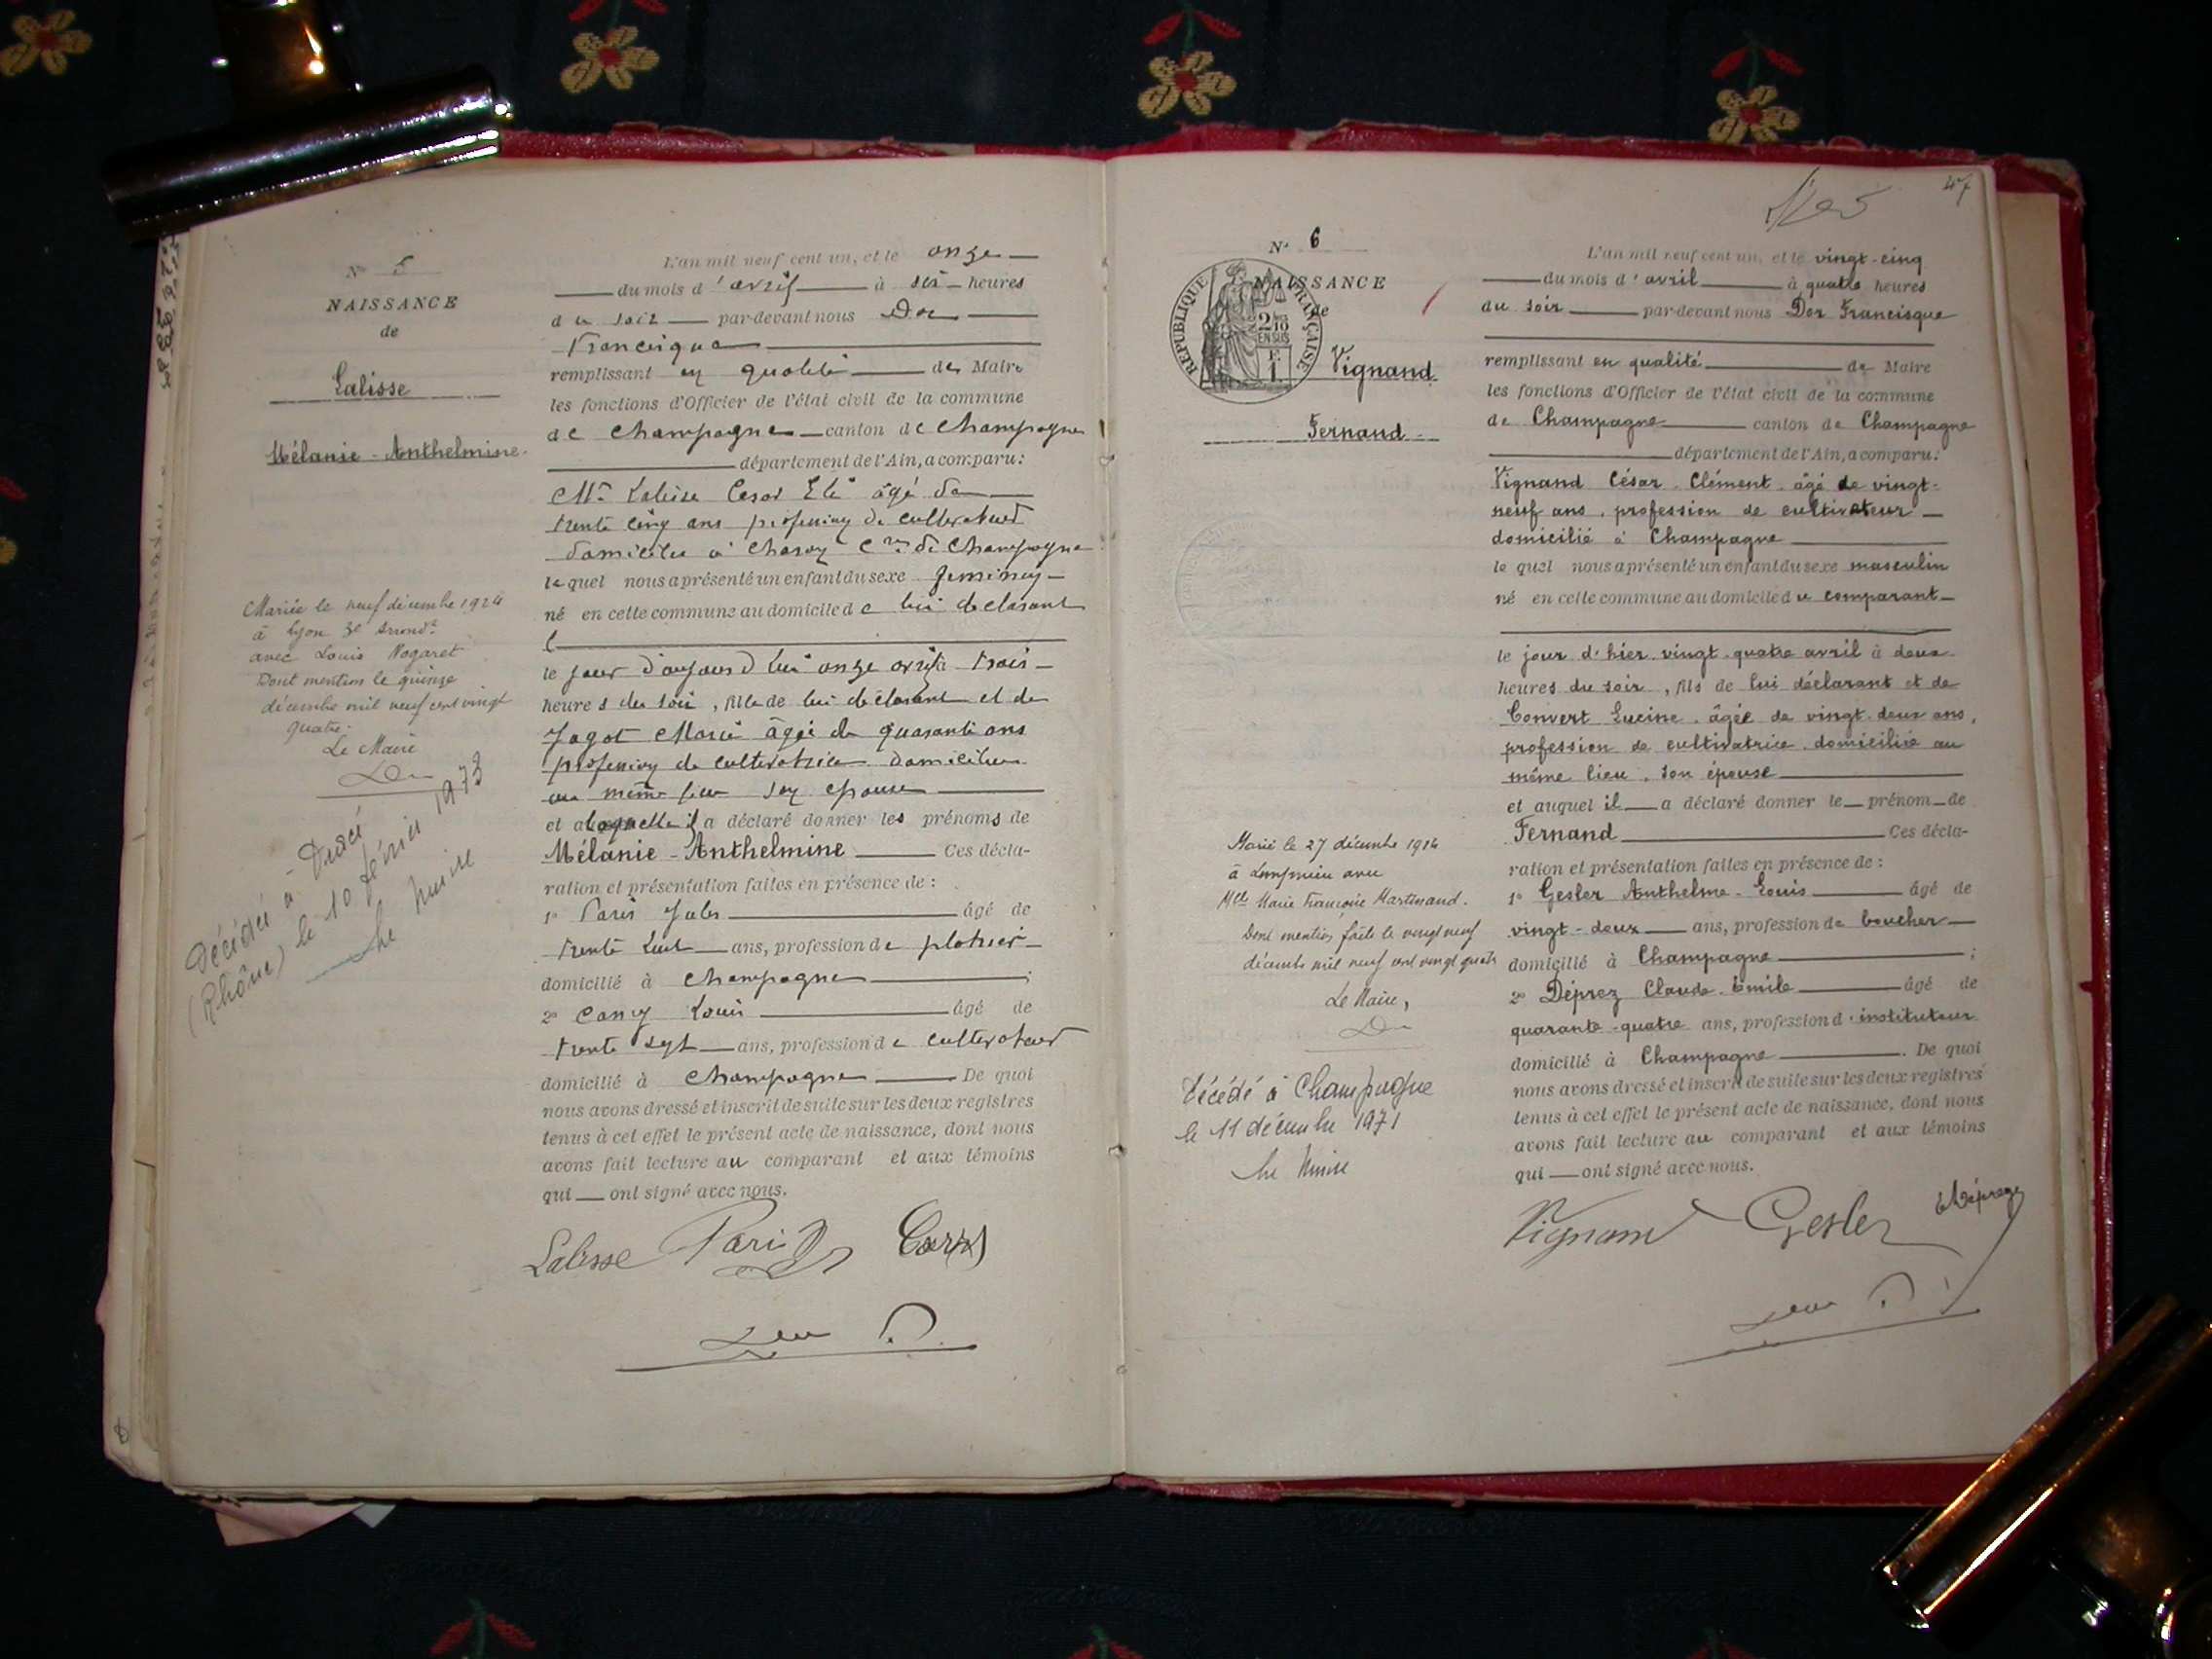 N° 5
NAISSANCE
de
Lalisse
Mélanie - Anthelmine.
Mariée le neuf décembre 1924
à Lyon 3e arrondt
avec Louis Nogaret
Dont mention le quinze
décembre mil neuf cent vingt
quatre.
Le Maire
Décédée à Dracé
(Rhône) le 10 février 1973
Le Maire
L'an mil neuf cent un, et le onze
du mois d'avril à six heures
du soir par-devant nous Dor
Francisque
remplissant en qualité de Maire
les fonctions d'Officier de l'état civil de la commune
de Champagne canton de Champagne
département de l'Ain, a comparu:
Mr Lalisse Cesar âgé de
trente cinq ans profession de cultivateur
domicilié à Charon Cne de Champagne
lequel nous a présenté un enfant du sexe feminin
né en cette commune au domicile de lui déclarant
le jour d'aujourd'hui onze avril à trois
heures du soir, fille de lui déclarant et de
Jagot Marie âgée de quarante ans
profession de cultivatrice domiciliée
au même lieu son épouse
et a laquelle il a déclaré donner les prénoms de
Mélanie - Anthelmine Ces décla-
ration et présentation faites en présence de :
1° Paris Jules âgé de
trente huit ans, profession de platrier
domicilié à Champagne ;
2° Louis âgé de
trente sept ans, profession de cultivateur
domicilié à Champagne De quoi
nous avons dressé et inscrit de suite sur les deux registres
tenus à cet effet le présent acte de naissance, dont nous
avons fait lecture au comparant et aux témoins
qui ont signé avec nous.
Lalisse Paris
47
N° 6
NAISSANCE
de
RÉPUBLIQUE FRANÇAISE
2/10
EN SUS
F.
1.
Vignand
Fernand
Marié le 27 décembre 1924
à Lompnieu avec
Mlle Marie Françoise Martinand.
Dont mention faite le vingt neuf
décembre mil neuf cent vingt quatre
Le Maire,
Décédé à Champagne
le 11 décembre 1971
Le Maire
L'an mil neuf cent un, et le vingt-cinq
du mois d'avril à quatre heures
du soir par-devant nous Dor Francisque
remplissant en qualité de Maire
les fonctions d'Officier de l'état civil de la commune
de Champagne canton de Champagne
département de l'Ain, a comparu:
Vignand César-Clément, âgé de vingt-
neuf ans, profession de cultivateur
domicilié à Champagne
lequel nous a présenté un enfant du sexe masculin
né en cette commune au domicile du comparant
le jour d'hier vingt-quatre avril à deux
heures du soir, fils de lui déclarant et de
Convert Lucine, âgée de vingt-deux ans,
profession de cultivatrice, domiciliée au
même lieu, son épouse
et auquel il a déclaré donner le prénom de
Fernand Ces décla-
ration et présentation faites en présence de :
1° Gesler Anthelme-Louis âgé de
vingt-deux ans, profession de boucher
domicilié à Champagne ;
2° Déprez Claude-Emile âgé de
quarante-quatre ans, profession d'instituteur
domicilié à Champagne. De quoi
nous avons dressé et inscrit de suite sur les deux registres
tenus à cet effet le présent acte de naissance, dont nous
avons fait lecture au comparant et aux témoins
qui ont signé avec nous.
Vignand Gesler Déprez